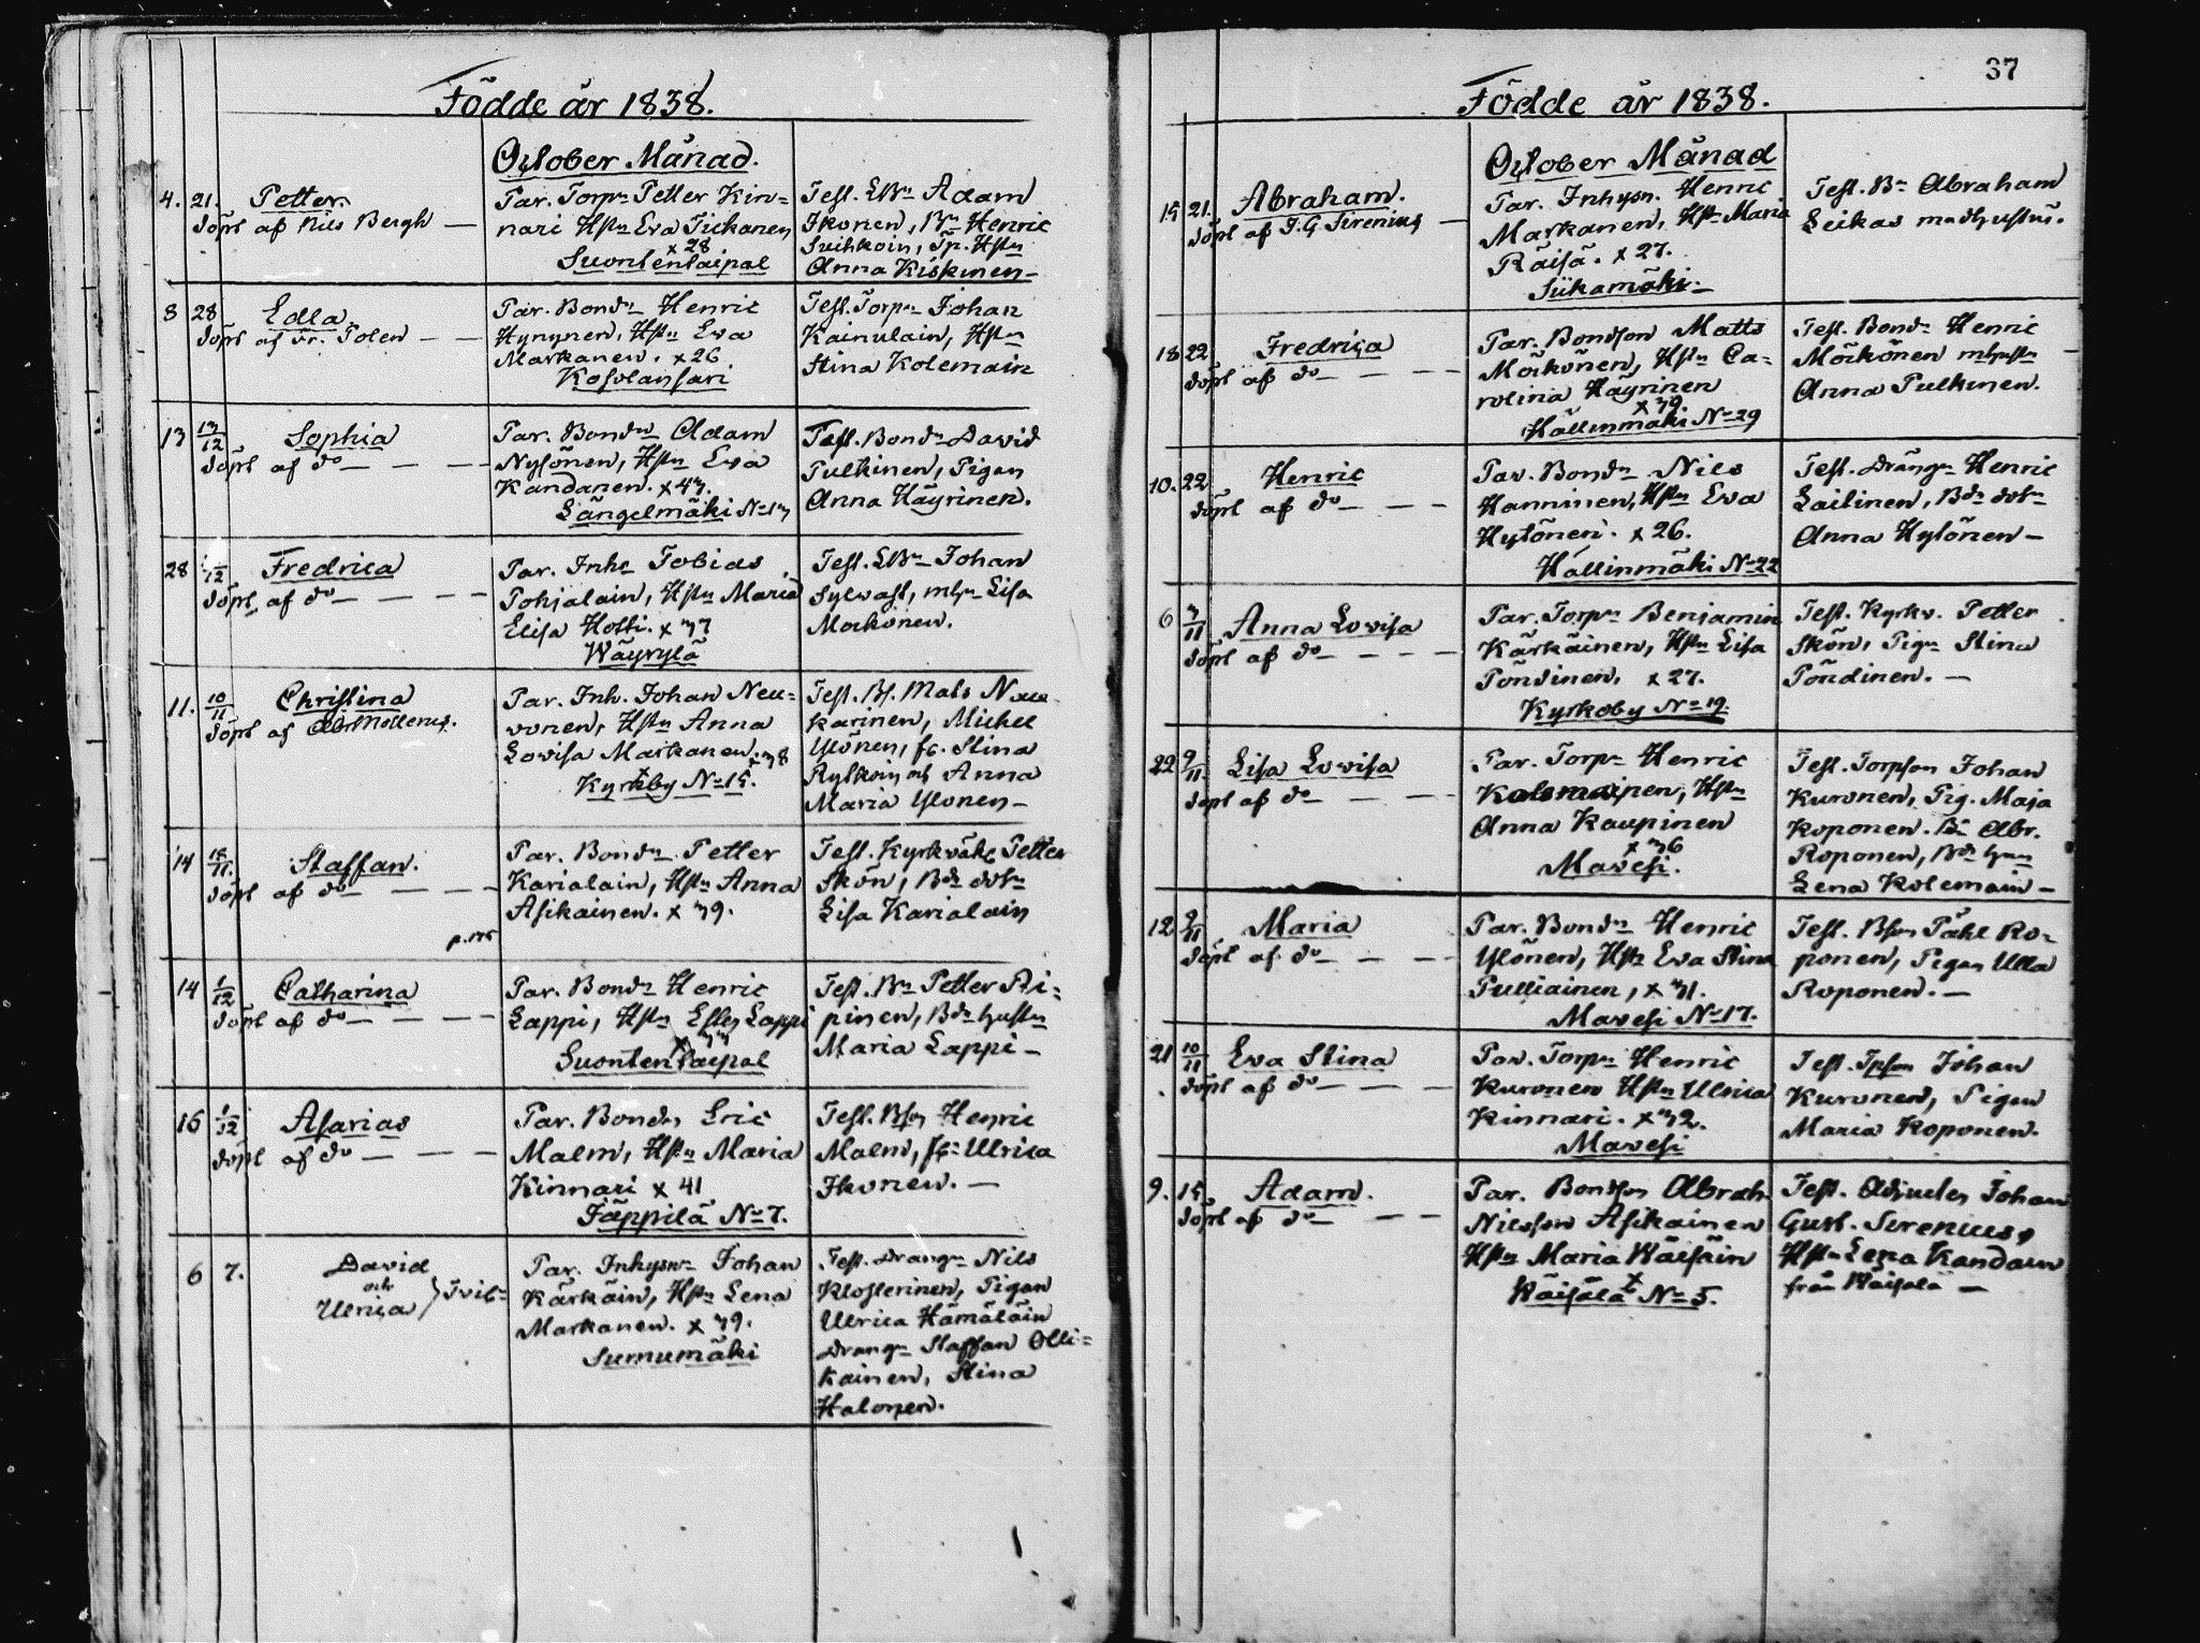 Födde år 1838.
October Månad.
4. 21. Petter.
döpt af Nils Bergh —
Par. Torpn Petter Kin=
nari Hstn Eva Tiikanen
x 28
Suontentaipal
Test. LBn Adam
Ikonen, Bn Henric
Suihkoin, Tp. Hstn
Anna Kiskinen —
8 28 Edla.
döpt af Fr. Polen — —
Par. Bondn Henric
Hynynen, Hstn Eva
Markanen. x 26
Kosolansari
Test. Torpn Johan
Kainulain, Hstn
Stina Kolemain
13 Sophia
döpt af do — — —
Par. Bondn Adam
Nylönen, Hstn Eva
Kandanen. x 43.
Längelmäki No 13
Test. Bondn David
Pulkinen, Pigan
Anna Häyrinen.
28 Fredrica
döpt af do — — —
Par. Inhs Tobias
Pohjalain, Hstn Maria
Elisa Hotti. x 37
Wäyrylä
Test. LBn Johan
Sylvast, mhn Lisa
Morkonen.
11. 10/11 Christina
döpt af Ab. Mollerus.
Par. Inh. Johan Neu=
vonen, Hstn Anna
Lovisa Markanen. x 38
Kyrkby No 15.
Test. Bs. Mats
karinen, Michel
Ylönen, fr. Stina
Rytkoin och Anna
Maria Ylonen —
14 15/11. Staffan.
döpt af do — — —
Par. Bondn Petter
Karialain, Hstn Anna
Asikainen. x 39.
Test. Kyrkväkt Petter
Skön, Bdn dotn
Lisa Karialain
14 1/12 Catharina
döpt af do — — —
Par. Bondn Henric
Lappi, Hstn Ester Lappi
x 33
Suontentaipal
Test. Bn Petter Ri=
pinen, Bdn hustn
Maria Lappi —
16 1/12 Asarias
döpt af do — — —
Par. Bondn Eric
Malm, Hstn Maria
Kinnari x 41
Jäppilä No 7.
Test. Bsn Henric
Malm, fr Ulrica
Ikonen. —
6 7. David
och
Ulrica } Tvil=
Par. Inhysn Johan
Kärkäin, Hstn Lena
Markanen. x 39.
Surnumäki
Test. Drängn Nils
Klosterinen, Pigan
Ulrica Hämäläin
Drängn Staffan Olli=
kainen, Stina
Halonen.
37
Födde år 1838.
October Månad
15 21. Abraham.
döpt af J. G. Sirenius —
Par. Inhysn. Henric
Markanen, Hstn Maria
Räisä. x 27.
Siikamäki —
Test. Bn Abraham
Leikas med hustru.
18 22 Fredrica
döpt af do — — —
Par. Bondson Matts
Mörkönen, Hstn Ca=
rolina Häyrinen
x 39.
Hällinmäki No 29
Test. Bondn Henric
Mörkönen mhustn —
Anna Pulkinen.
10. 22 Henric
döpt af do — — —
Par. Bondn Nils
Hanninen, Hstn Eva
Hytönen. x 26.
Hällinmäki No 22
Test. Drängn Henric
Laitinen, Bdn dotn
Anna Hytönen —
6 3/11 Anna Lovisa
döpt af do — — — —
Par. Torpn Benjamin
Kärkäinen, Hstn Lisa
Pöndinen, x 27.
Kyrkoby No 19.
Test. Kyrkv. Petter
Skön, Pign Stina
Pöndinen. —
22 9/11. Lisa Lovisa
döpt af do — — —
Par. Torpn Henric
Kolemainen, Hstn
Anna Kaupinen
x 36
Mavesi.
Test. Torpson Johan
Kuronen, Pig. Maja
Koponen. Bn Abr.
Roponen, Bdn hun
Lena Kolemain —
12 9/11 Maria
döpt af do — — —
Par. Bondn Henric
Ylönen, Hstn Eva Stina
Pulliainen, x 31.
Mavesi No 17.
Test. Bson Påhl Ro=
ponen, Pigan Ulla
Roponen. —
21 10/11 Eva Stina
döpt af do — — —
Par. Torpn Henric
Kuronen Hstn Ulrica
Kinnari. x 32.
Mavesi
Test. Tpson Johan
Kuronen, Pigan
Maria Koponen.
9. 15 Adam.
döpt af do — — —
Par. Bondson Abrah.
Nilsson Asikainen
Hstn Maria Wäisäin
x
Wäisälä No 5.
Test. Adjuncten Johan
Gust. Sirenius,
Hstn Lena Kandain
från Wäisälä —